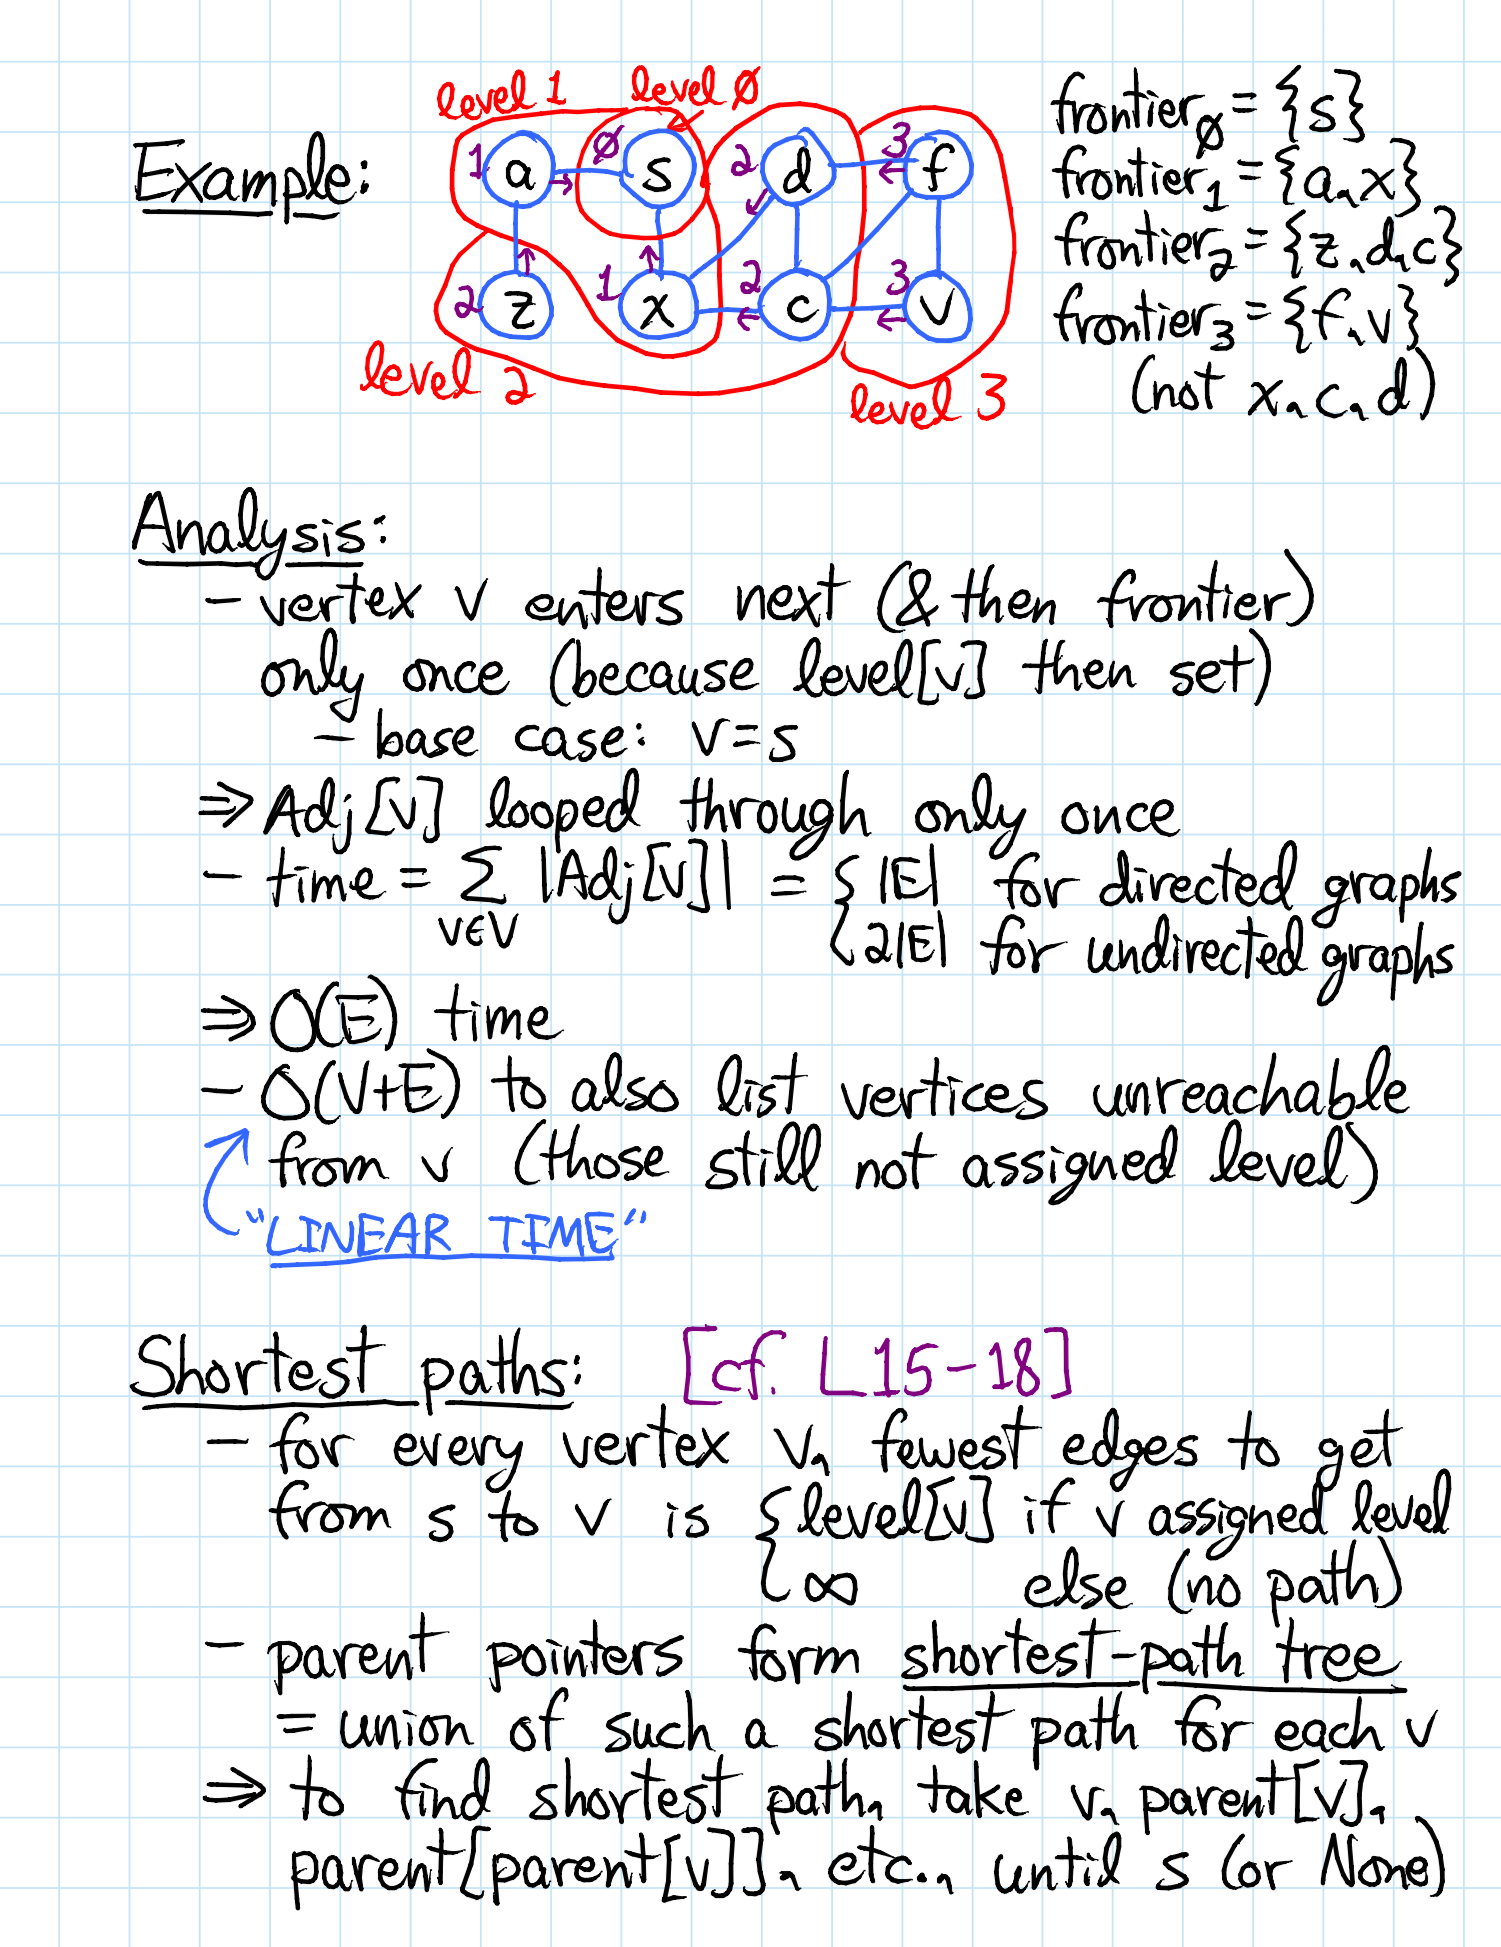 level 1
level 0
Example:
1 a
0 s
2 d
3 f
2 z
1 x
2 c
3 v
level 2
level 3
frontier0 = {s}
frontier1 = {a, x}
frontier2 = {z, d, c}
frontier3 = {f, v}
(not x, c, d)
Analysis:
- vertex v enters next (& then frontier)
only once (because level[v] then set)
- base case: v=s
⇒ Adj[v] looped through only once
- time = Σ |Adj[v]| = { |E| for directed graphs
v∈V 2|E| for undirected graphs
⇒ O(E) time
- O(V+E) to also list vertices unreachable
from v (those still not assigned level)
"LINEAR TIME"
Shortest paths: [cf. L15-18]
- for every vertex v, fewest edges to get
from s to v is { level[v] if v assigned level
∞ else (no path)
- parent pointers form shortest-path tree
= union of such a shortest path for each v
⇒ to find shortest path, take v, parent[v],
parent[parent[v]], etc., until s (or None)